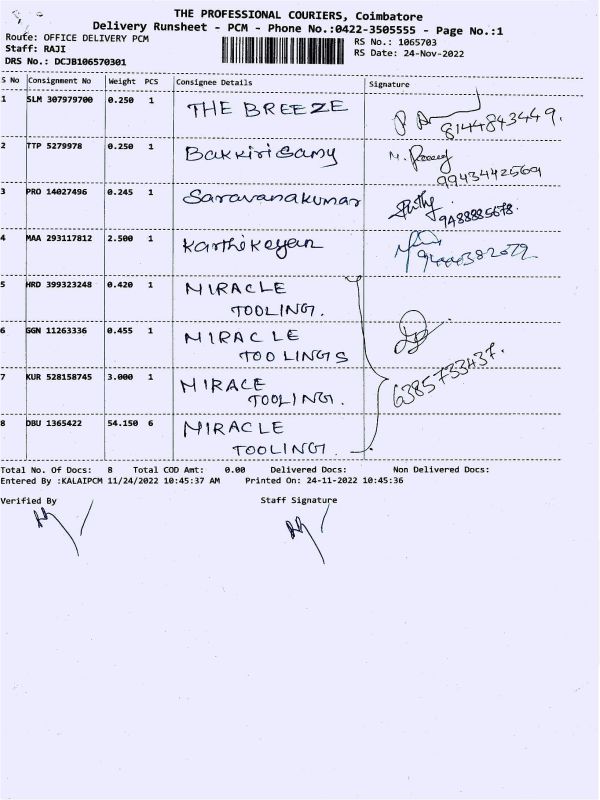 THE PROFESSIONAL COURIERS, Coimbatore
Delivery Runsheet - PCM - Phone No.:0422-3505555 - Page No.:1
Route: OFFICE DELIVERY PCM
RS No.: 1065703
Staff: RAJI
RS Date: 24-Nov-2022
DRS No.: DCJB106570301
S No Consignment No Weight PCS Consignee Details Signature
1 SLM 307979700 0.250 1 THE BREEZE 8144843449.
2 TTP 5279978 0.250 1 Bakkirisamy 9943442569
3 PRO 14027496 0.245 1 Saravanakumar 9488885678.
4 MAA 293117812 2.500 1 Karthikeyan
5 HRD 399323248 0.420 1 MIRACLE
TOOLING.
6 GGN 11263336 0.455 1 MIRACLE
TOOLINGS
7 KUR 528158745 3.000 1 MIRACE
TOOLING.
6385733437.
8 DBU 1365422 54.150 6 MIRACLE
TOOLING.
Total No. Of Docs: 8 Total COD Amt: 0.00 Delivered Docs: Non Delivered Docs:
Entered By :KALAIPCM 11/24/2022 10:45:37 AM Printed On: 24-11-2022 10:45:36
Verified By Staff Signature